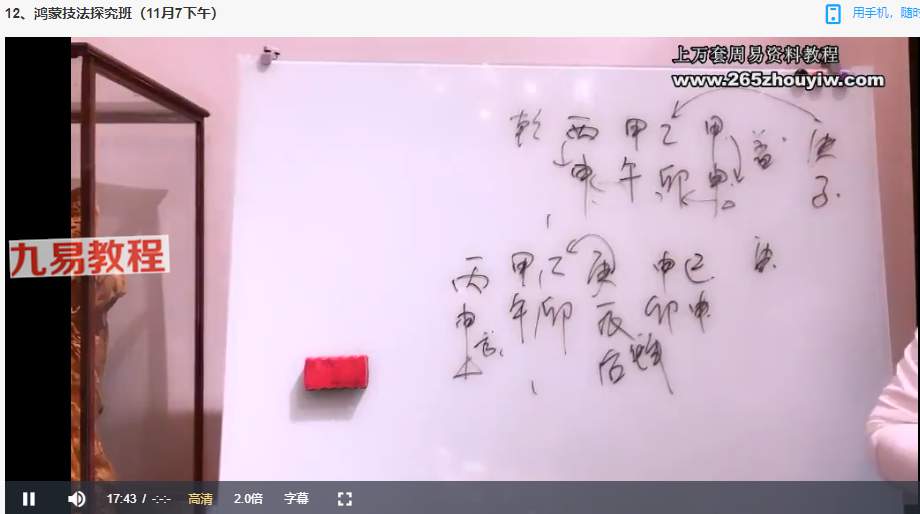 12、鸿蒙技法探究班（11月7下午）
用手机，随时
上万套周易资料教程
www.265zhouyiw.com
乾 丙 甲 乙 甲 庚
申 午 卯 申 子
九易教程
丙 甲 乙 庚
申 午 卯 辰 卯 申
17:43 / -:-:- 高清 2.0倍 字幕